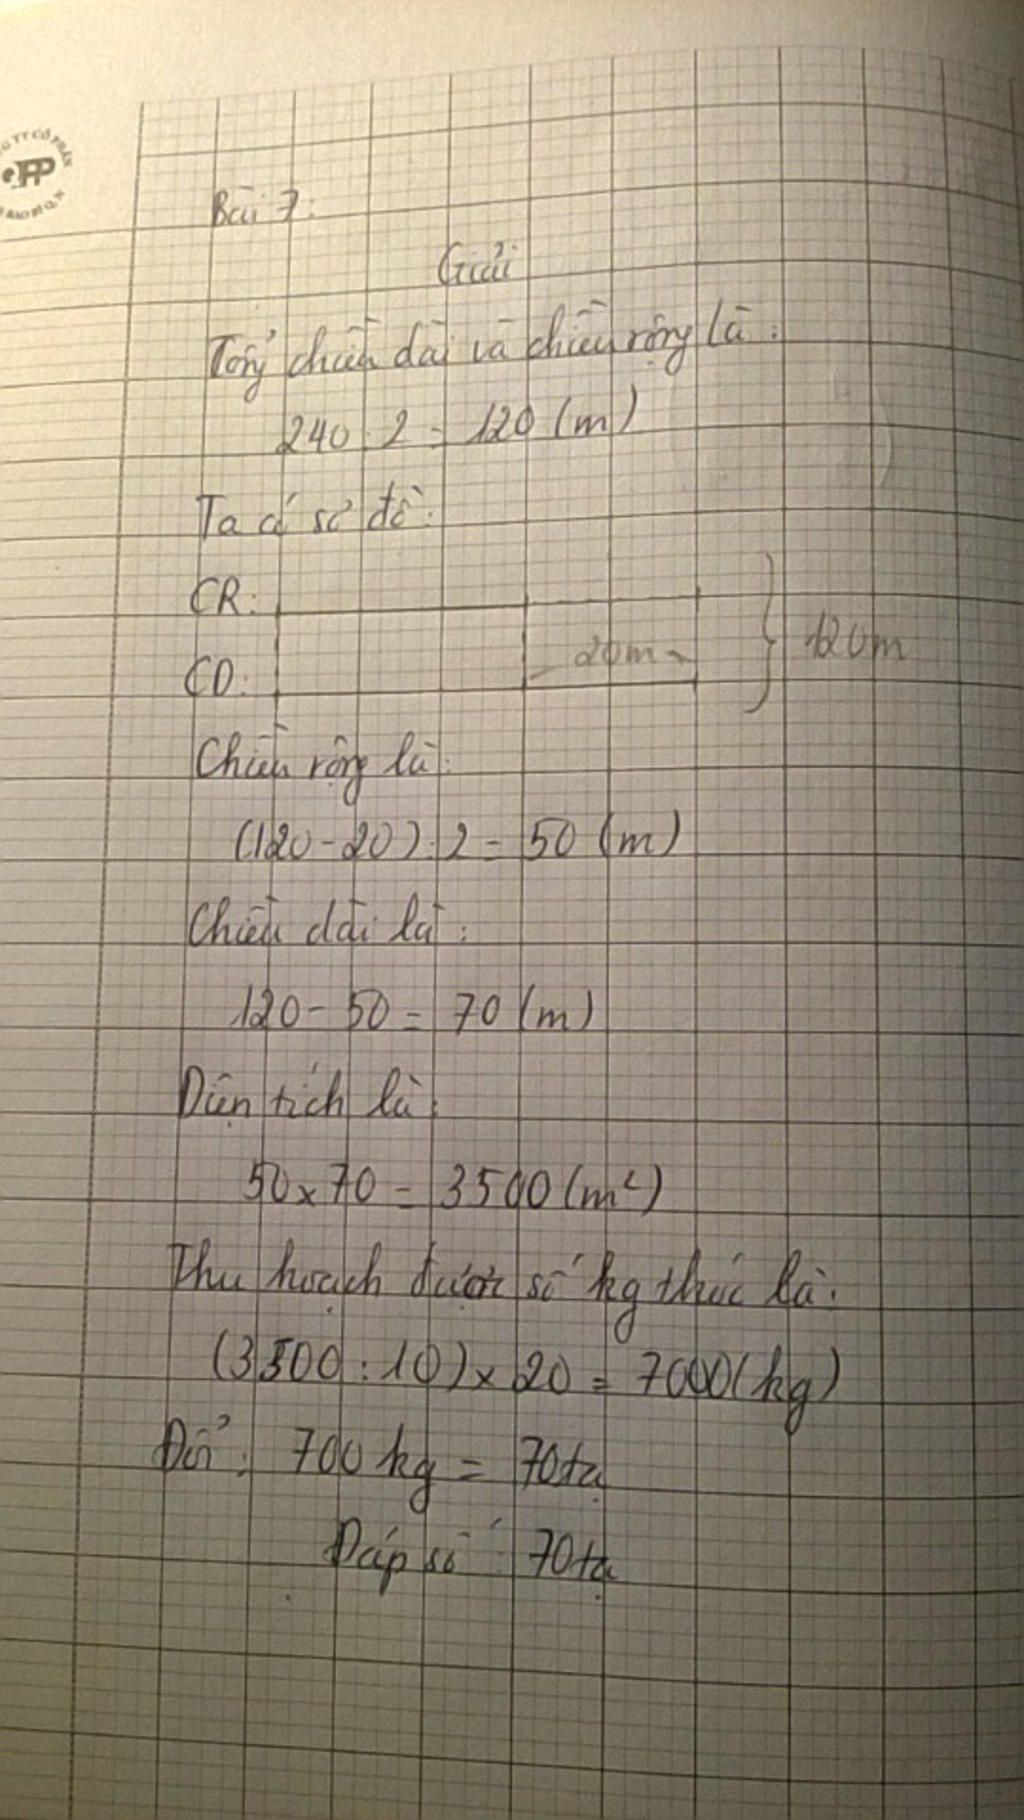 TY CỔ PHẦN
PP
BAO BÌ Q.N
Bài 7:
Giải
Tổng chiều dài và chiều rộng là:
240 : 2 = 120 (m)
Ta có sơ đồ:
CR:
20m
120m
CD:
Chiều rộng là:
(120 - 20) : 2 = 50 (m)
Chiều dài là:
120 - 50 = 70 (m)
Diện tích là:
50 x 70 = 3500 (m²)
Thu hoạch được số kg thóc là:
(3500 : 10) x 20 = 7000 (kg)
Đổi: 700 kg = 70 tạ
Đáp số: 70 tạ